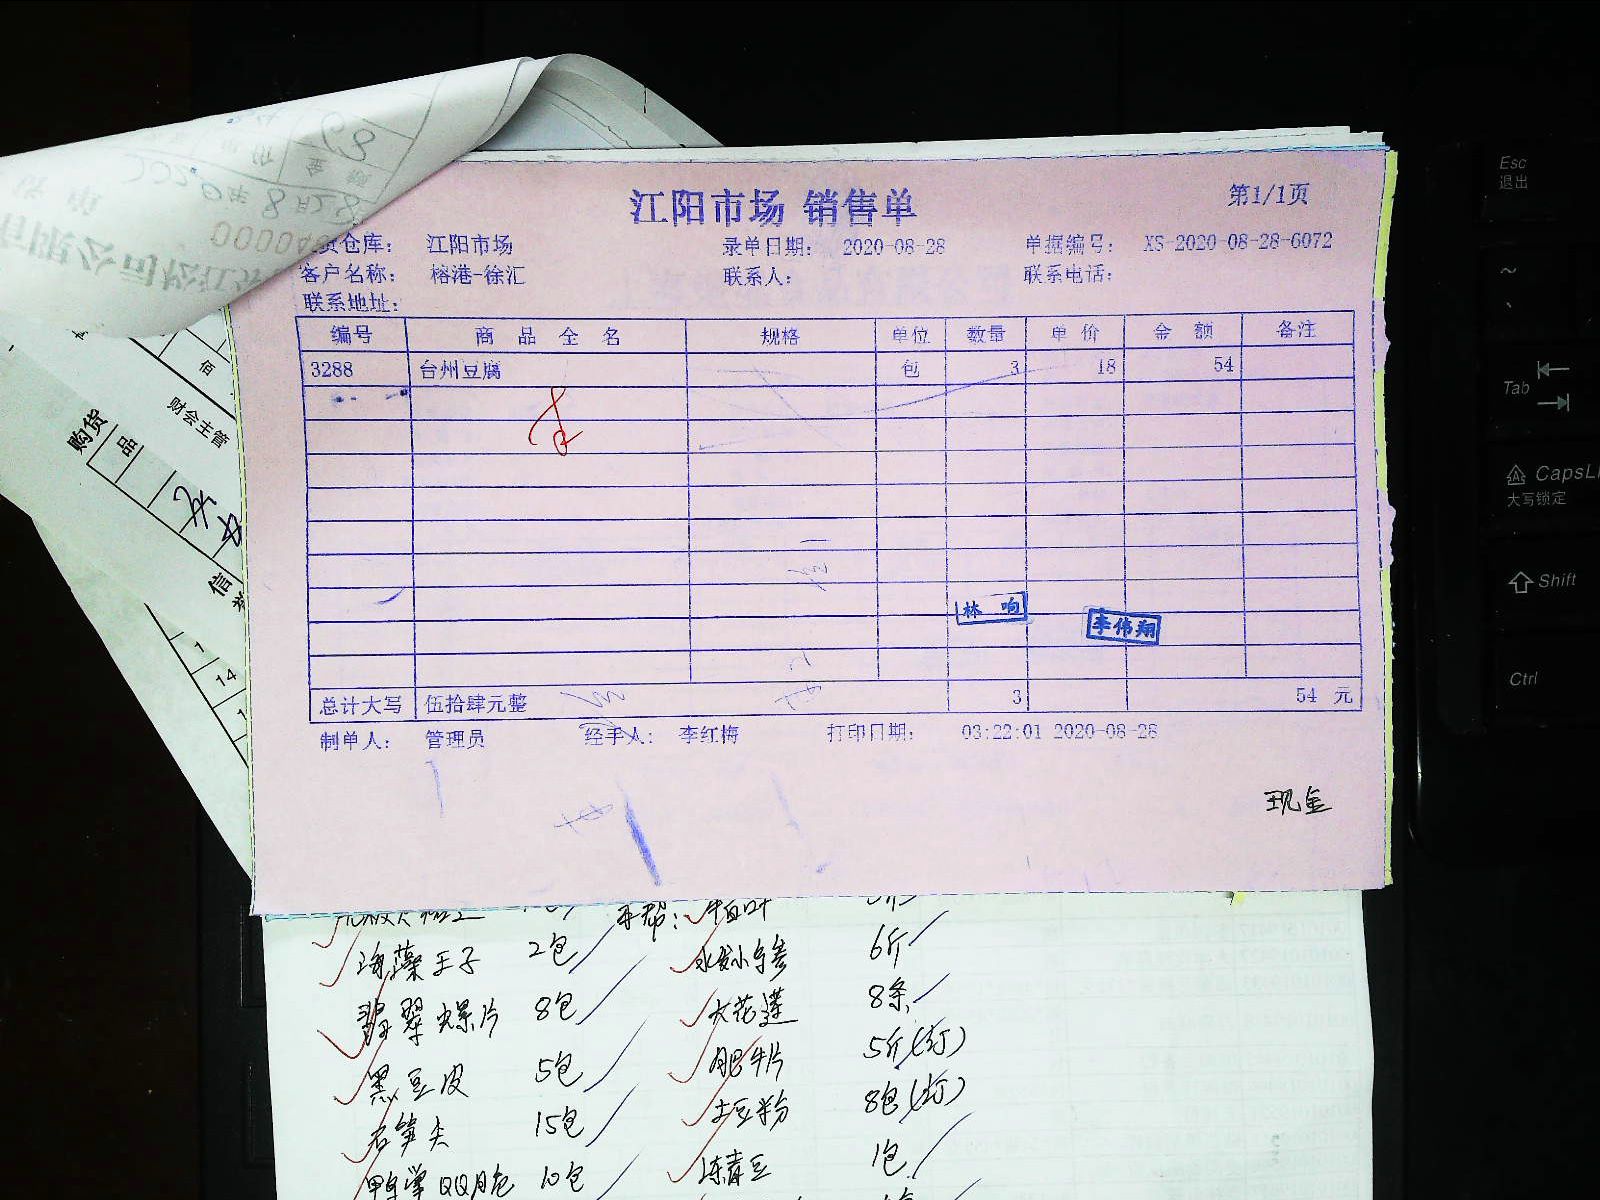 江阳市场 销售单
第1/1页
货仓库： 江阳市场 录单日期： 2020-08-28 单据编号： XS-2020-08-28-6072
客户名称： 榕港-徐汇 联系人： 联系电话：
联系地址：
编号 商品全名 规格 单位 数量 单价 金额 备注
3288 台州豆腐 包 3 18 54
林响
李伟翔
总计大写 伍拾肆元整 3 54 元
制单人： 管理员 经手人： 李红梅 打印日期： 03:22:01 2020-08-28
现金
佰
财会主管
购货
品
信
1
14
1
海藻王子 2包 水发小乌参 6斤
翡翠螺片 8包 大花莲 8条
黑豆皮 5包 肥牛片 5斤(订)
石笋尖 15包 土豆粉 8包(订)
10包 冻青豆 1包
Esc
退出
~
Tab
CapsL
大写锁定
Shift
Ctrl